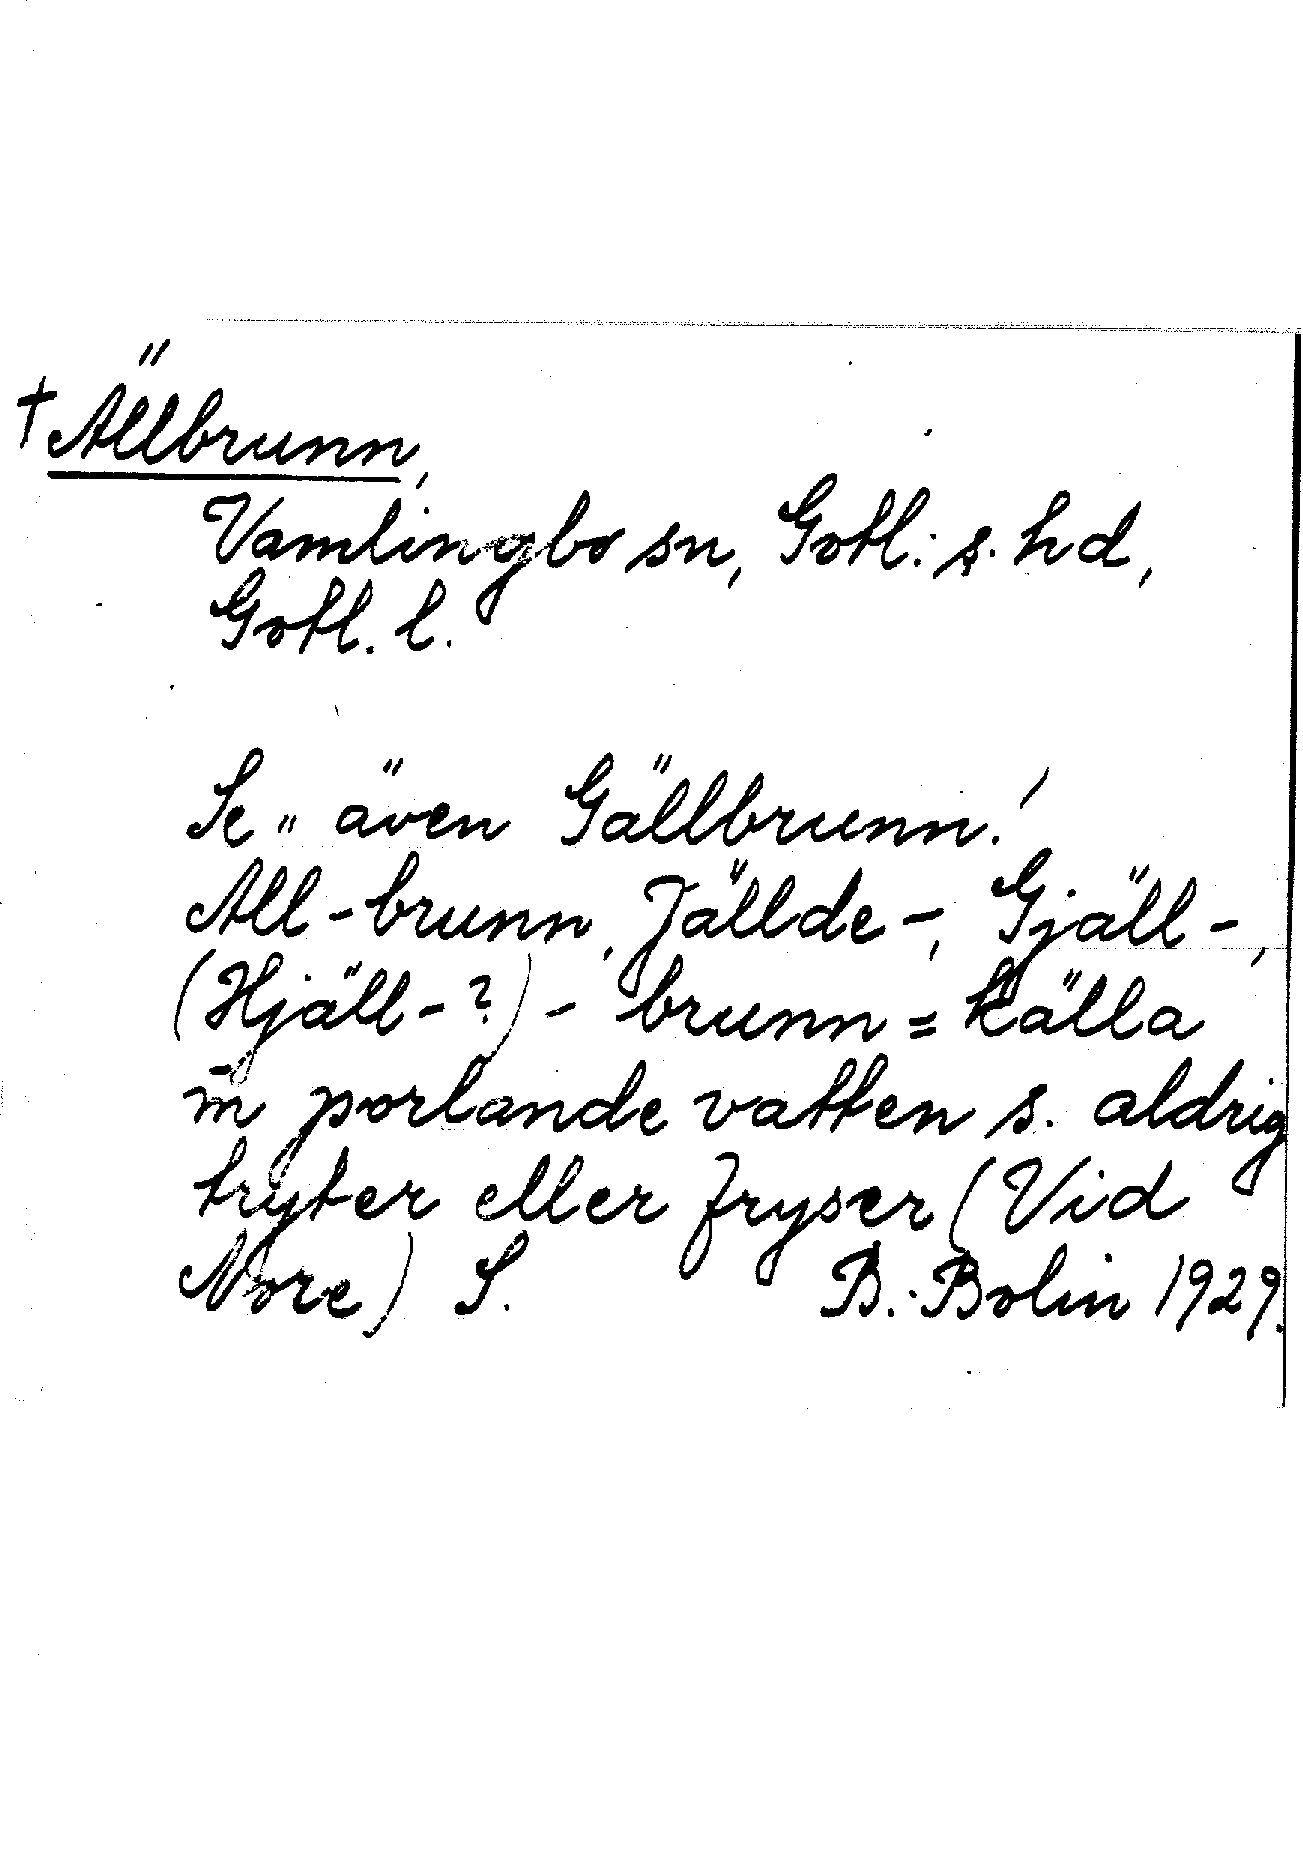 † Ällbrunn,
Vamlingbo sn, Gotl: s. hd,
Gotl. l.
Se även Gällbrunn!
Äll-brunn, Jällde-, Gjäll-,
(Hjäll-?) - brunn = källa
m̄ porlande vatten s. aldrig
tryter eller fryser (Vid
Nore) S. B. Bolin 1929.